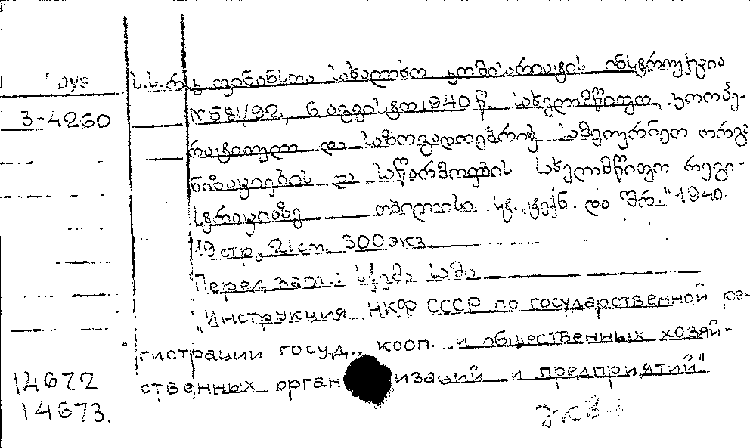 ს.ს.რ.კ. ფინანსთა სახალხო კომისარიატის ინსტრუქცია
3-4260
№581/92, 6 აგვისტო 1940 წ. სახელმწიფო, კოოპე-
რატიული და საზოგადოებრივ სამეურნეო ორგა
ნიზაციების და საწარმოების სახელმწიფო რეგი-
სტრაციაზე თბილისი და შრ." 1940.
19 стр. 21 cm. 300 экз
Перед загл.:
"Инструкция НКФ СССР по государственной ре-
гистрации госуд., кооп. и общественных хозяй-
14672 ственных организаций и предприятий"
14673.